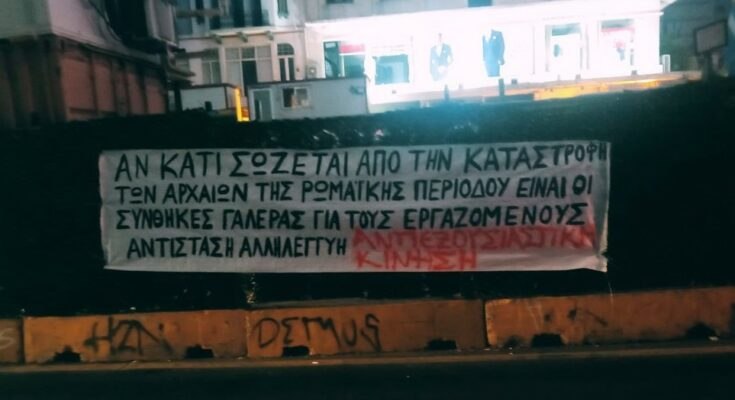 ΑΝ ΚΑΤΙ ΣΩΖΕΤΑΙ ΑΠΟ ΤΗΝ ΚΑΤΑΣΤΡΟΦΗ
ΤΩΝ ΑΡΧΑΙΩΝ ΤΗΣ ΡΩΜΑΪΚΗΣ ΠΕΡΙΟΔΟΥ ΕΙΝΑΙ ΟΙ
ΣΥΝΘΗΚΕΣ ΓΑΛΕΡΑΣ ΓΙΑ ΤΟΥΣ ΕΡΓΑΖΟΜΕΝΟΥΣ
ΑΝΤΙΣΤΑΣΗ ΑΛΛΗΛΕΓΓΥΗ ΑΝΤΙΕΞΟΥΣΙΑΣΤΙΚΗ
ΚΙΝΗΣΗ